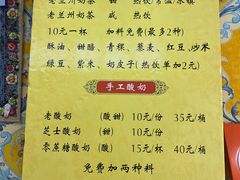 老兰州奶茶 甜 热饮/常温/冰镇
老兰州奶茶 咸 热饮
10元一杯 加料免费（最多2种）
酥油、甜醅、青稞、藜麦、红豆、炒米
绿豆、紫米、奶皮子（热饮单加2元）
手工酸奶
老酸奶 （酸甜） 10元/份 35元/桶
芝士酸奶 （甜） 10元/份
零蔗糖酸奶 （酸） 15元/杯 40元/桶
免费加两种料